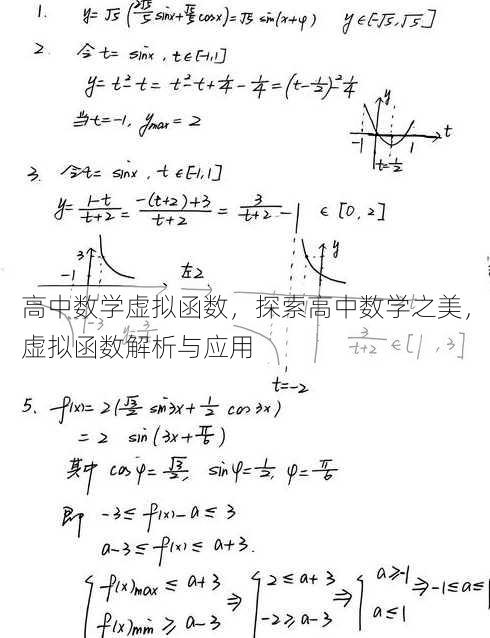 1. y=√5(2√5/5 sinx+√5/5 cosx)=√5 sin(x+φ) y∈[-√5,√5]
2. 令t=sinx,t∈[-1,1]
y=t²-t=t²-t+1/4-1/4=(t-1/2)²-1/4
当t=-1,ymax=2
y
t
-1
1
t=1/2
3. 令t=sinx,t∈[-1,1]
y=1-t/t+2=-(t+2)+3/t+2=3/t+2-1∈[0,2]
3
-1
左2
y
高中数学虚拟函数，探索高中数学之美，
虚拟函数解析与应用
3/t+2∈[1,3]
t=-2
5. f(x)=2(√3/2 sin3x+1/2 cos3x)
=2 sin(3x+π/6)
其中 cosφ=√3/2, sinφ=1/2, φ=π/6
即 -3≤f(x)-a≤3
a-3≤f(x)≤a+3.
{f(x)max≤a+3 ⇒ {2≤a+3 ⇒ {a≥-1 ⇒-1≤a≤1
f(x)min≥a-3 -2≥a-3 a≤1